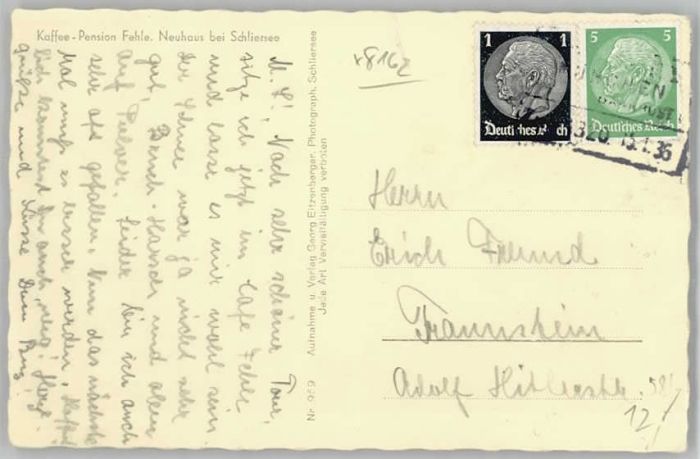 Kaffee-Pension Fehle. Neuhaus bei Schliersee
M. L! Nach sehr schöner Tour,
sitze ich jetzt im Cafe Fehle
und lasse es mir wohl sein.
Der Schnee war ja nicht sehr
gut, Bruch-Harsch und oben
auf Pulver. Leider bin ich auch
sehr oft gefallen. Nun das nächste
Mal muss es besser werden. Hoffent
lich kommst Du auch, Herzl.
Grüße und Küsse Dein
Nr. 959 Aufnahme u. Verlag Georg Eitzenberger, Photograph, Schliersee
Jede Art Vervielfältigung verboten
x8162
1 1
Deutsches Reich
5 5
Deutsches Reich
MÜNCHEN
15.1.36
Herrn
Erich Freund
Traunstein
Adolf Hitlerstr. 58
12/